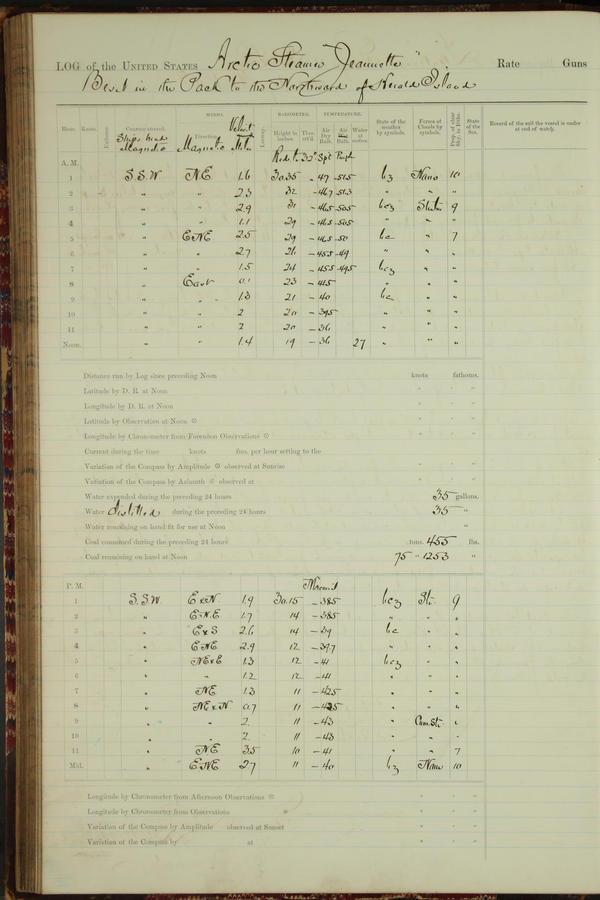 LOG of the UNITED STATES Arctic Steamer "Jeannette" Rate Guns
Beset in the Pack to the Northward of Herald Island
WINDS. BAROMETER. TEMPERATURE.
Hour. Knots. Fathoms. Courses steered. Direction. Leeway. Height in inches. Ther. att'd. Air Dry Bulb. Air Wet Bulb. Water at surface. State of the weather by symbols. Forms of Clouds by symbols. Prop. of clear Sky, in 10ths. State of the Sea. Record of the sail the vessel is under at end of watch.
Ships head Magnetic Magnetic
A. M. Red. to 32°
1 S.S.W NE 1.6 30.35 -47 -51.5 bz Nano 10
2 " " 2.3 32 -46.7 -51.3 " " "
3 " " 2.9 31 -46.5 -50.5 bcz 9
4 " " 1.1 29 -46.5 -50.5 " " "
5 " ENE 2.5 29 -46.5 -50 bc " 7
6 " " 2.7 26 -45.5 -49 " " "
7 " " 1.5 24 -45.5 -49.5 bcz " "
8 " East 0.1 23 -41.5 " " "
9 " " 1.3 21 -40 bc " "
10 " " 2 20 -39.5 " " "
11 " " 2 20 -36 " " "
Noon. " " 1.4 19 -36 27 " " "
Distance run by Log since preceding Noon knots fathoms.
Latitude by D. R. at Noon ° ' "
Longitude by D. R. at Noon ° ' "
Latitude by Observation at Noon ☉ ° ' "
Longitude by Chronometer from Forenoon Observations ☉ ° ' "
Current during the time knots fms. per hour setting to the
Variation of the Compass by Amplitude ☉ observed at Sunrise ° ' "
Variation of the Compass by Azimuth ☉ observed at ° ' "
Water expended during the preceding 24 hours 35 gallons.
Water distilled during the preceding 24 hours 35 "
Water remaining on hand fit for use at Noon "
Coal consumed during the preceding 24 hours tons. 455 lbs.
Coal remaining on hand at Noon 75 " 1253 "
P. M.
1 S.S.W. ExN 1.9 30.15 -38.5 bcz Str. 9
2 " E.N.E 1.7 14 -38.5 " " "
3 " ExS 2.6 14 -39 bc " "
4 " ENE 2.9 12 -39.7 " " "
5 " NExE 1.3 12 -41 bcz " "
6 " " 1.2 12 -41 " " "
7 " NE 1.3 11 -42.5 " " "
8 " NExN 0.7 11 -42.5 " " "
9 " " 2. 11 -43 " Cum Str. "
10 " " 2. 11 -43 " " "
11 " NE 3.5 10 -41 " " 7
Mid. " ENE 2.7 11 -40 bz Nano 10
Longitude by Chronometer from Afternoon Observations ☉ ° ' "
Longitude by Chronometer from Observations ° ' "
Variation of the Compass by Amplitude observed at Sunset ° ' "
Variation of the Compass by at ° ' "